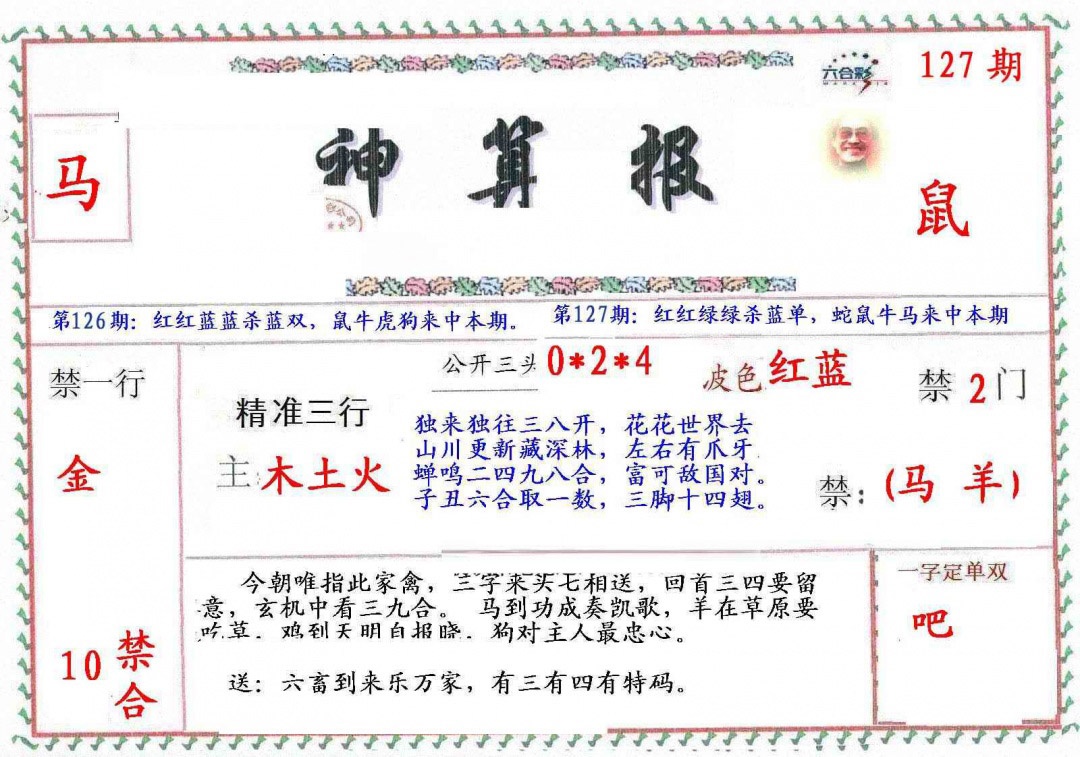 六合彩
127 期
马
神算报
鼠
第126期：红红蓝蓝杀蓝双，鼠牛虎狗来中本期。
第127期：红红绿绿杀蓝单，蛇鼠牛马来中本期
禁一行
金
10 禁合
精准三行
主 木土火
公开三头 0*2*4
波色 红蓝
独来独往三八开，花花世界去
山川更新藏深林，左右有爪牙
蝉鸣二四九八合，富可敌国对。
子丑六合取一数，三脚十四翅。
禁 2 门
禁：(马 羊)
今朝唯指此家禽，三字来头七相送，回首三四要留
意，玄机中看三九合。 马到功成奏凯歌，羊在草原要
吃草，鸡到天明自报晓，狗对主人最忠心。
送：六畜到来乐万家，有三有四有特码。
一字定单双
吧